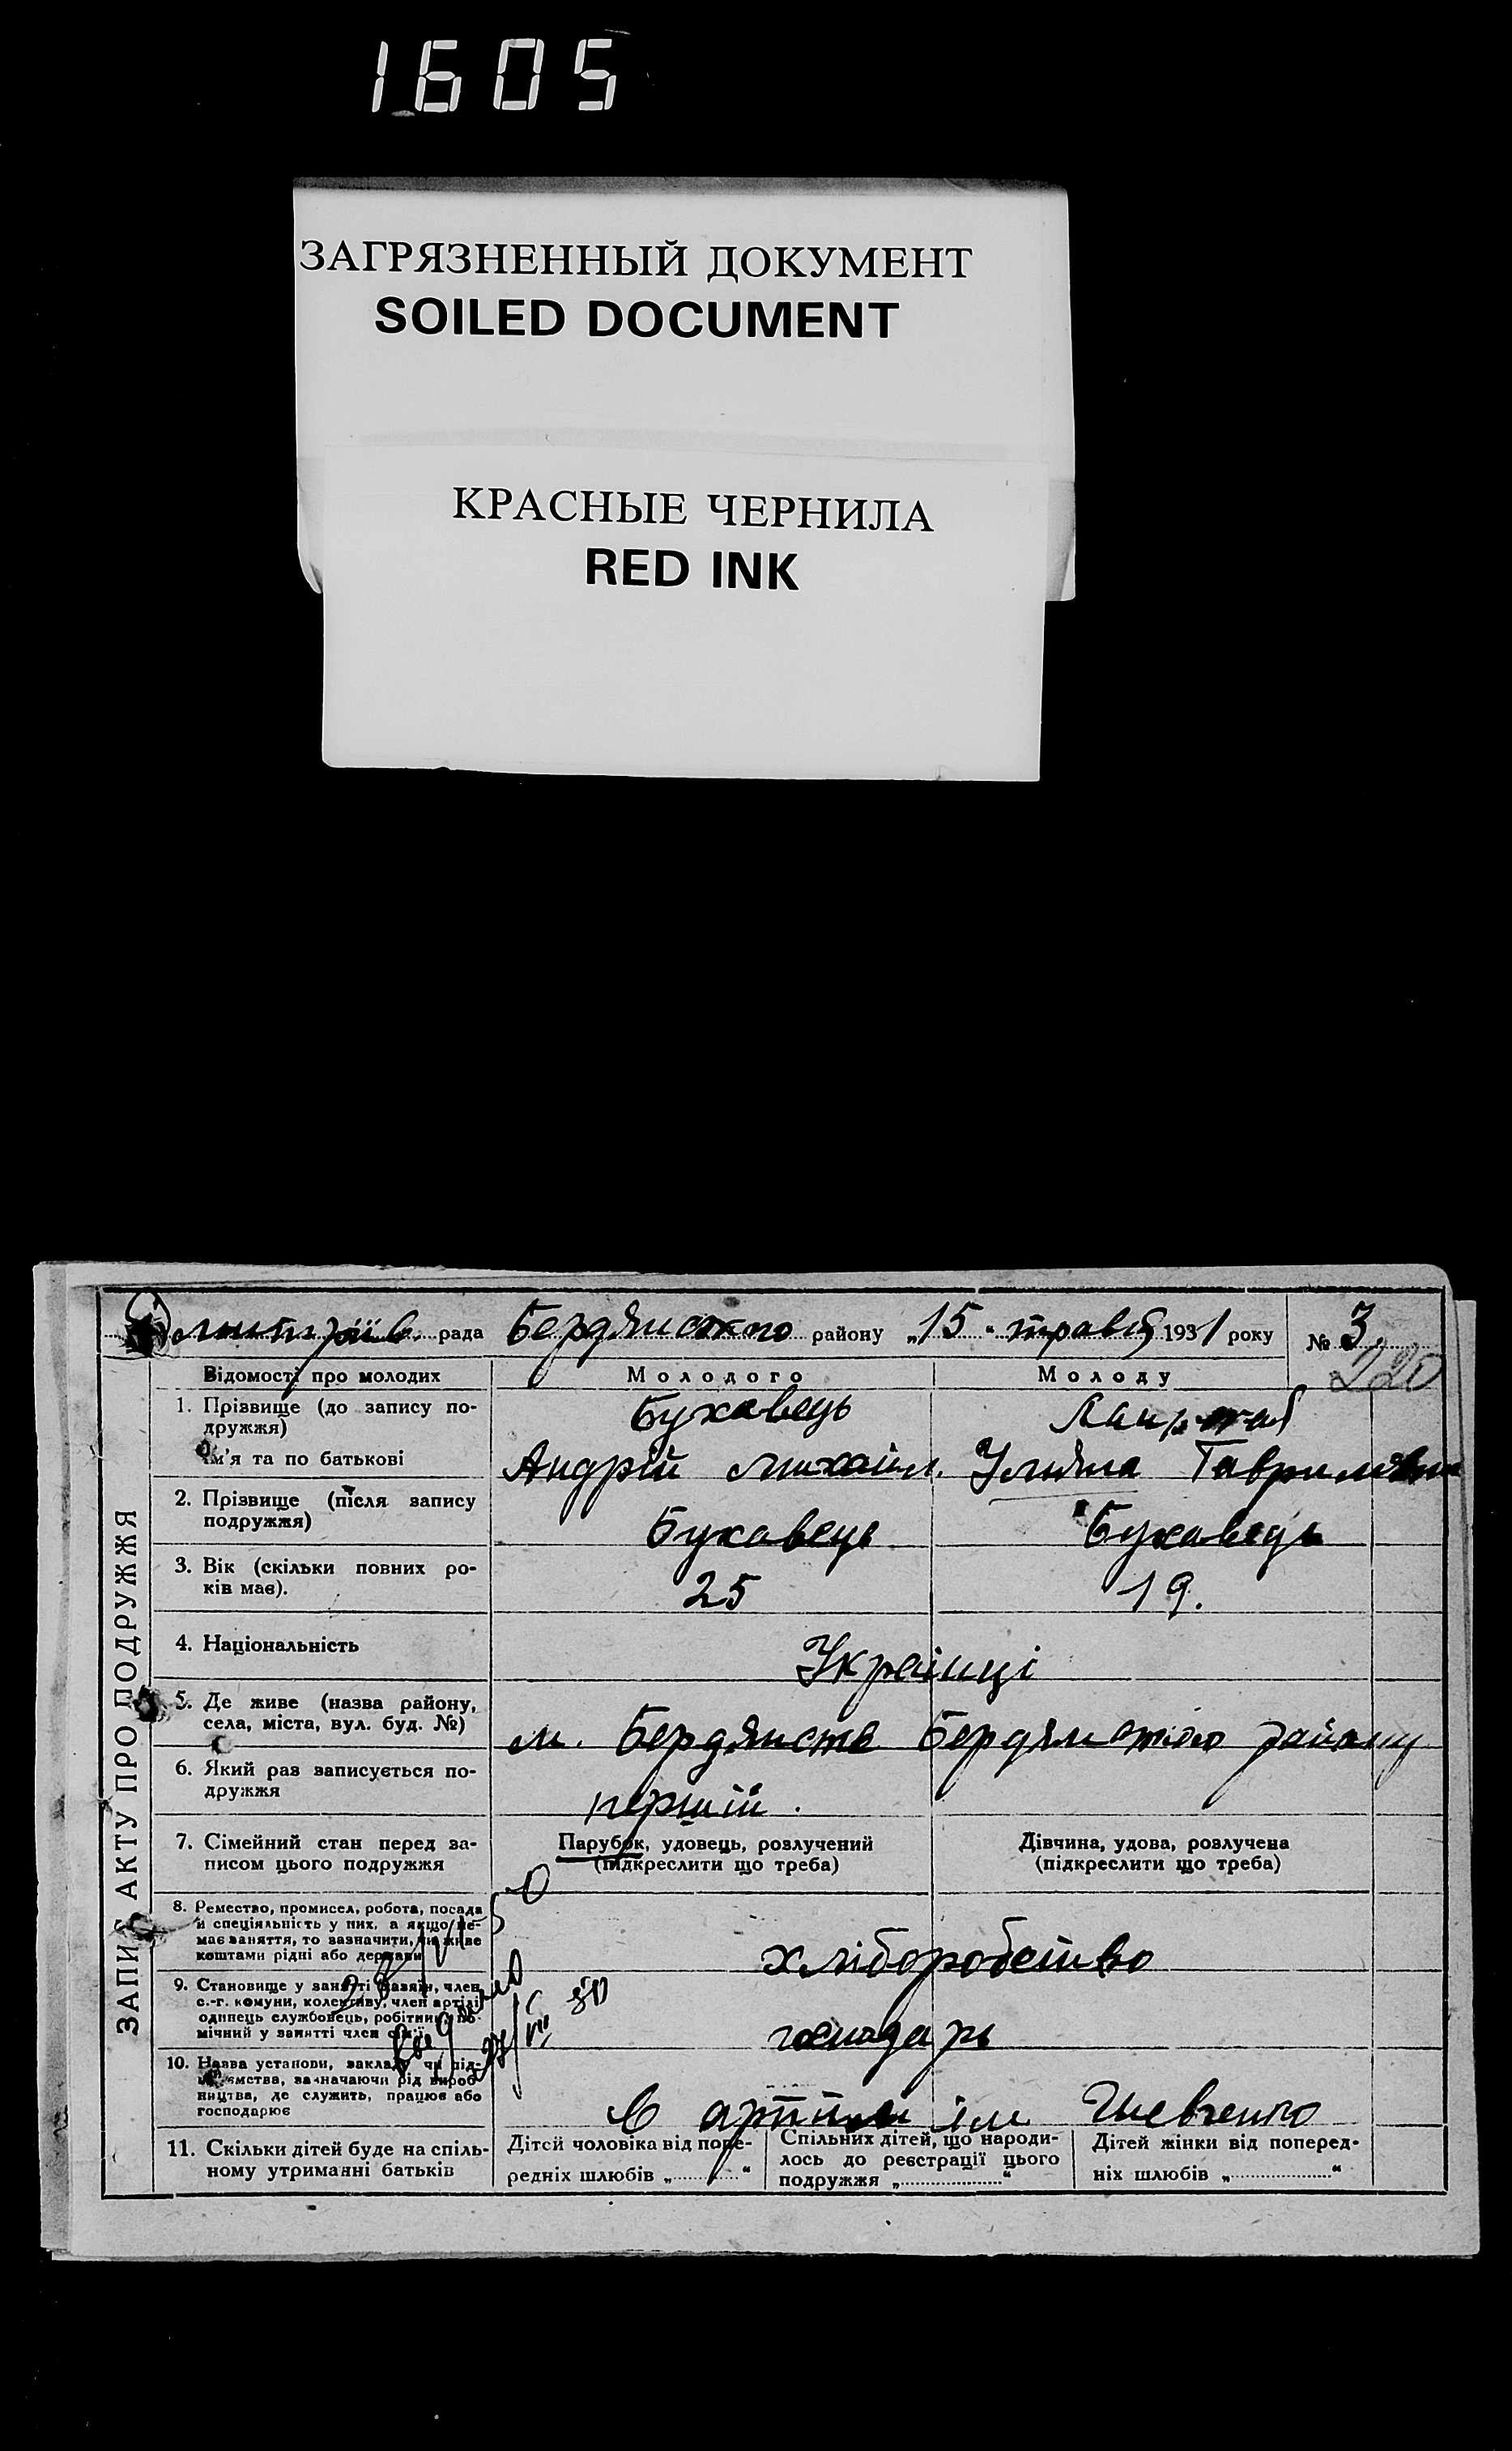 1605
ЗАГРЯЗНЕННЫЙ ДОКУМЕНТ
SOILED DOCUMENT
КРАСНЫЕ ЧЕРНИЛА
RED INK
рада Бердянского району „15“ травня 1931 року № 3.
220
ЗАПИС АКТУ ПРО ПОДРУЖЖЯ
Відомості про молодих Молодого Молоду
1. Прізвище (до запису по-
дружжя) Буховець
Ім'я та по батькові Андрій Михайл. Уляна
2. Прізвище (після запису
подружжя) Буховець Буховець
3. Вік (скільки повних ро-
ків має). 25 19.
4. Національність Українці
5. Де живе (назва району,
села, міста, вул. буд. №) м. Бердянське Бердянського району
6. Який раз записується по-
дружжя перший.
7. Сімейний стан перед за-
писом цього подружжя
Парубок, удовець, розлучений
(підкреслити що треба)
Дівчина, удова, розлучена
(підкреслити що треба)
8. Ремество, промисел, робота, посада
й спеціяльність у них, а якщо не-
має заняття, то зазначити, чи живе
коштами рідні або держави хліборобство
9. Становище у занятті (хазяїн, член
с.-г. комуни, колективу, член артілі
одинець службовець, робітник, по-
мічний у занятті член сім'ї господарь
10. Назва установи, закладу чи під-
приємства, зазначаючи рід вироб-
ництва, де служить, працює або
господарює в артили ім Шевченко
11. Скільки дітей буде на спіль-
ному утриманні батьків
Дітей чоловіка від попе-
редніх шлюбів „............“
Спільних дітей, що народи-
лось до реєстрації цього
подружжя „....................“
Дітей жінки від поперед-
ніх шлюбів „....................“